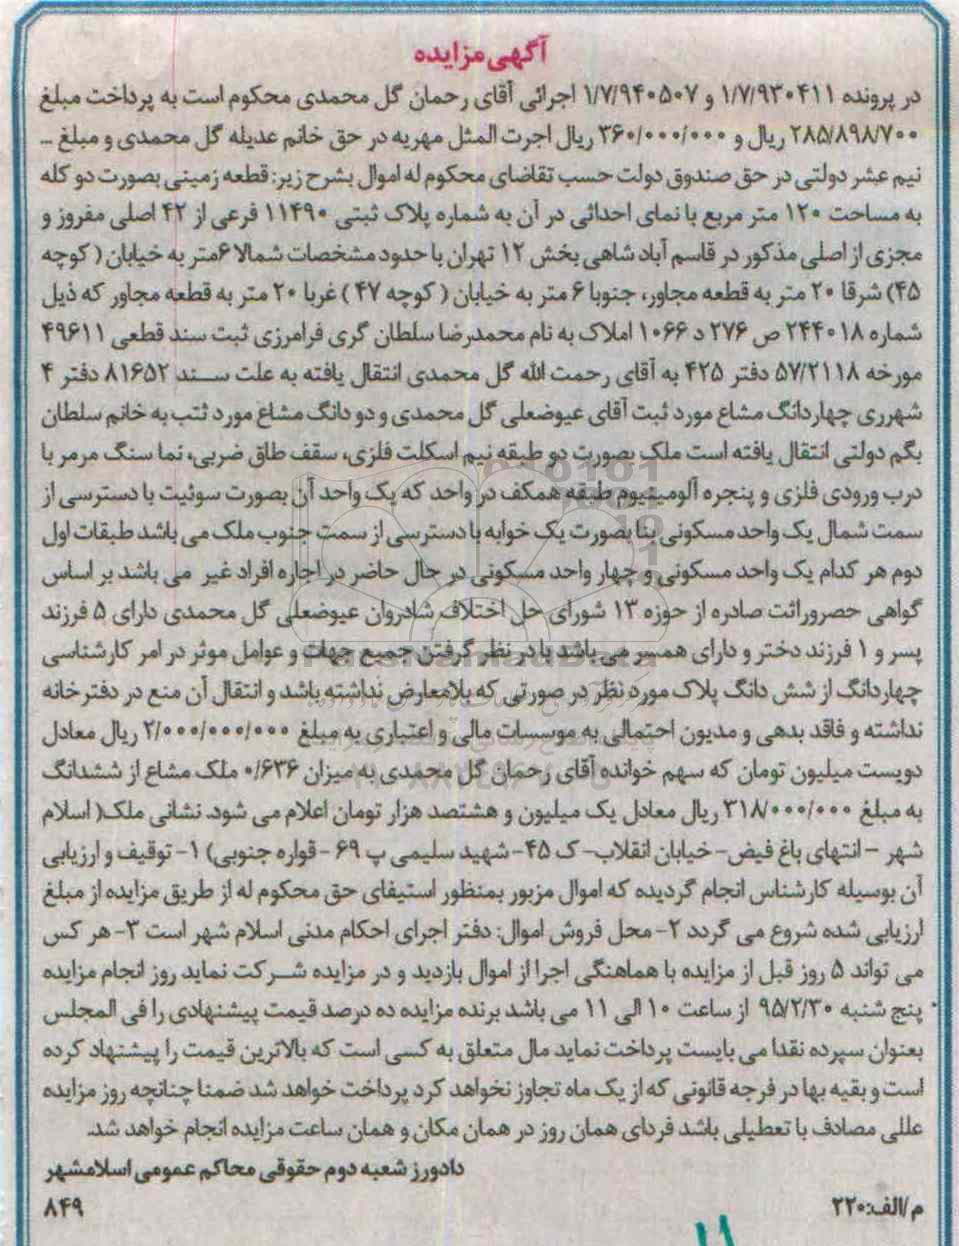 آگهی مزایده
در پرونده ۱/۷/۹۳۰۴۱۱ و ۱/۷/۹۴۰۵۰۷ اجرائی آقای رحمان گل محمدی محکوم است به پرداخت مبلغ
۲۸۵/۸۹۸/۷۰۰ ریال و ۳۶۰/۰۰۰/۰۰۰ ریال اجرت المثل مهریه در حق خانم عدیله گل محمدی و مبلغ ...
نیم عشر دولتی در حق صندوق دولت حسب تقاضای محکوم له اموال بشرح زیر: قطعه زمینی بصورت دو کله
به مساحت ۱۲۰ متر مربع با نمای احداثی در آن به شماره پلاک ثبتی ۱۱۴۹۰ فرعی از ۴۲ اصلی مفروز و
مجزی از اصلی مذکور در قاسم آباد شاهی بخش ۱۲ تهران با حدود مشخصات شمالا ۶متر به خیابان ( کوچه
۴۵) شرقا ۲۰ متر به قطعه مجاور، جنوبا ۶ متر به خیابان ( کوچه ۴۷ ) غربا ۲۰ متر به قطعه مجاور که ذیل
شماره ۲۴۴۰۱۸ ص ۲۷۶ د ۱۰۶۶ املاک به نام محمدرضا سلطان گری فرامرزی ثبت سند قطعی ۴۹۶۱۱
مورخه ۵۷/۲۱۱۸ دفتر ۴۲۵ به آقای رحمت الله گل محمدی انتقال یافته به علت سند ۸۱۶۵۲ دفتر ۴
شهرری چهاردانگ مشاع مورد ثبت آقای عیوضعلی گل محمدی و دو دانگ مشاع مورد ثتب به خانم سلطان
بگم دولتی انتقال یافته است ملک بصورت دو طبقه نیم اسکلت فلزی، سقف طاق ضربی، نما سنگ مرمر با
درب ورودی فلزی و پنجره آلومینیوم طبقه همکف در واحد که یک واحد آن بصورت سوئیت با دسترسی از
سمت شمال یک واحد مسکونی بنا بصورت یک خوابه با دسترسی از سمت جنوب ملک می باشد طبقات اول
دوم هر کدام یک واحد مسکونی و چهار واحد مسکونی در حال حاضر در اجاره افراد غیر می باشد بر اساس
گواهی حصروراثت صادره از حوزه ۱۳ شورای حل اختلاف شادروان عیوضعلی گل محمدی دارای ۵ فرزند
پسر و ۱ فرزند دختر و دارای همسر می باشد با در نظر گرفتن جمیع جهات و عوامل موثر در امر کارشناسی
چهاردانگ از شش دانگ پلاک مورد نظر در صورتی که بلامعارض نداشته باشد و انتقال آن منع در دفترخانه
نداشته و فاقد بدهی و مدیون احتمالی به موسسات مالی و اعتباری به مبلغ ۲/۰۰۰/۰۰۰/۰۰۰ ریال معادل
دویست میلیون تومان که سهم خوانده آقای رحمان گل محمدی به میزان ۰/۶۳۶ ملک مشاع از ششدانگ
به مبلغ ۳۱۸/۰۰۰/۰۰۰ ریال معادل یک میلیون و هشتصد هزار تومان اعلام می شود. نشانی ملک( اسلام
شهر – انتهای باغ فیض- خیابان انقلاب- ک ۴۵- شهید سلیمی پ ۶۹ - قواره جنوبی) ۱- توقیف و ارزیابی
آن بوسیله کارشناس انجام گردیده که اموال مزبور بمنظور استیفای حق محکوم له از طریق مزایده از مبلغ
ارزیابی شده شروع می گردد ۲- محل فروش اموال: دفتر اجرای احکام مدنی اسلام شهر است ۳- هر کس
می تواند ۵ روز قبل از مزایده با هماهنگی اجرا از اموال بازدید و در مزایده شرکت نماید روز انجام مزایده
پنج شنبه ۹۵/۲/۳۰ از ساعت ۱۰ الی ۱۱ می باشد برنده مزایده ده درصد قیمت پیشنهادی را فی المجلس
بعنوان سپرده نقدا می بایست پرداخت نماید مال متعلق به کسی است که بالاترین قیمت را پیشنهاد کرده
است و بقیه بها در فرجه قانونی که از یک ماه تجاوز نخواهد کرد پرداخت خواهد شد ضمنا چنانچه روز مزایده
عللی مصادف با تعطیلی باشد فردای همان روز در همان مکان و همان ساعت مزایده انجام خواهد شد.
دادورز شعبه دوم حقوقی محاکم عمومی اسلامشهر
م/الف:۲۲۰
۸۴۹
۱۱